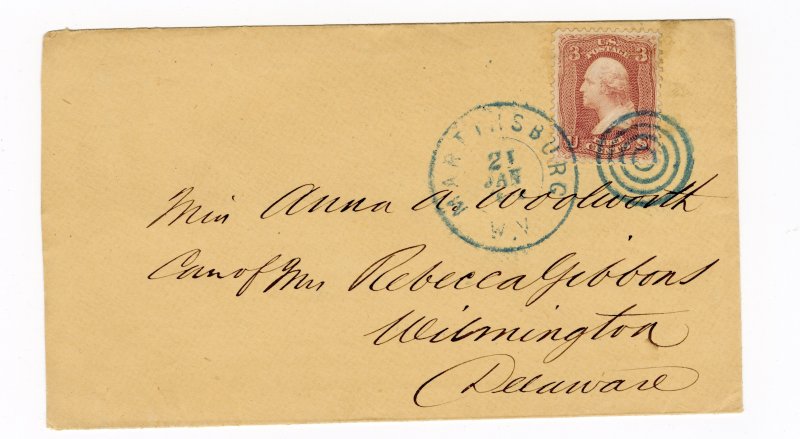 U.S.
POSTAGE
3 3
CENTS
MARTINSBURG
21
JAN
W.V
Miss Anna A. Woolworth
Care of Mrs Rebecca Gibbons
Wilmington
Delaware